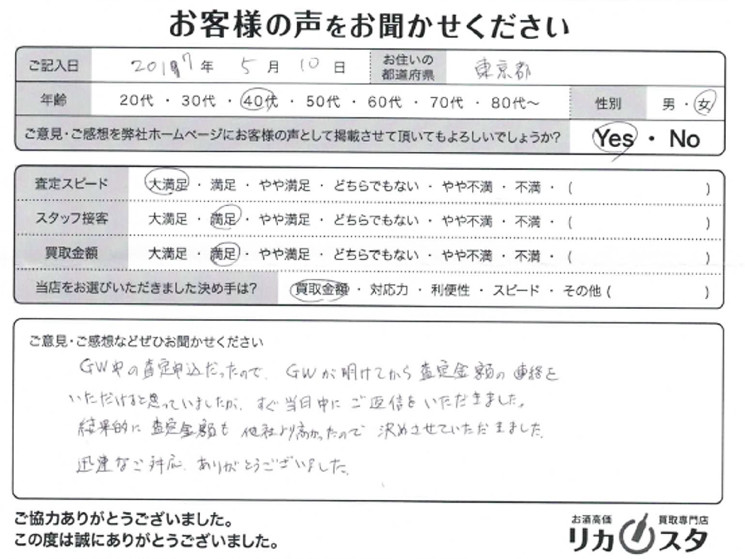 お客様の声をお聞かせください
ご記入日 2017年 5月 10日 お住いの都道府県 東京都
年齢 20代・30代・40代・50代・60代・70代・80代~ 性別 男・女
ご意見・ご感想を弊社ホームページにお客様の声として掲載させて頂いてもよろしいでしょうか? Yes・No
査定スピード 大満足・満足・やや満足・どちらでもない・やや不満・不満・( )
スタッフ接客 大満足・満足・やや満足・どちらでもない・やや不満・不満・( )
買取金額 大満足・満足・やや満足・どちらでもない・やや不満・不満・( )
当店をお選びいただきました決め手は? 買取金額・対応力・利便性・スピード・その他( )
ご意見・ご感想などぜひお聞かせください
GW中の査定申込だったので、GWが明けてから査定金額の連絡を
いただけると思っていましたが、すぐ当日中にご返信をいただきました。
結果的に査定金額も他社より高かったので決めさせていただきました。
迅速なご対応、ありがとうございました。
ご協力ありがとうございました。
この度は誠にありがとうございました。
お酒高価 買取専門店
リカスタ